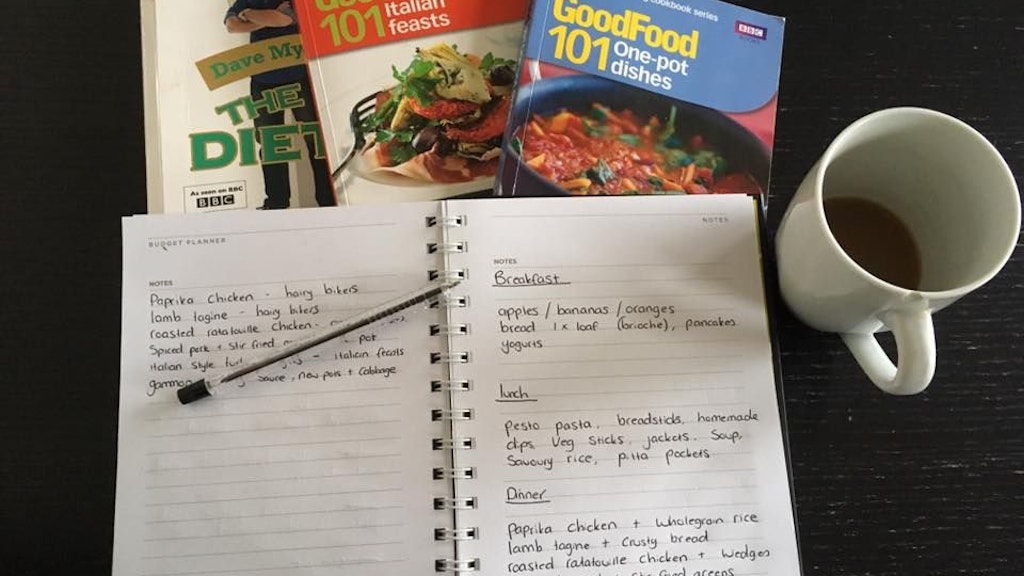 Dave My
THE
DIET
As seen on BBC
BBC
101 Italian
feasts
cookbook series
BBC
GoodFood
101 One-pot
dishes
BUDGET PLANNER
NOTES
Paprika chicken - hairy bikers
lamb tagine - hairy bikers
roasted ratatouille chicken -
Spiced pork + stir fried pot
italian style - italian feasts
gammon sauce, new pots + cabbage
NOTES
NOTES
Breakfast
apples / bananas / oranges
bread 1x loaf (brioche), pancakes
yogurts
lunch
pesto pasta, breadsticks, homemade
dips, veg sticks, jackets. Soup,
Savoury rice, pitta pockets
Dinner
Paprika chicken + wholegrain rice
lamb tagine + crusty bread
roasted ratatouille chicken + wedges
stir fried greens